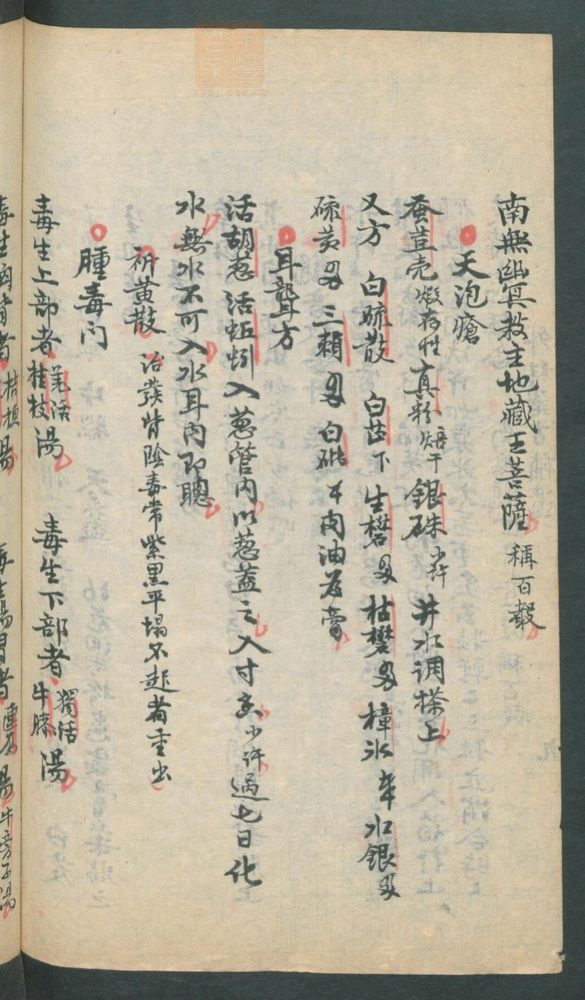 南無幽冥教主地藏王菩薩 稱百聲
天泡瘡
蚕荳壳煅存性真粉焙干銀硃少許井水调搽上
又方 白疏散 白芷下 生礬 枯礬 樟氷 水銀
硫黄 三賴 白砒 肉油爲膏
耳聾方
活胡葱活蚯蚓入葱管内以葱蓋之入寸 少许過七日化
水無水不可入水耳内即聰
黄散 治發背陰毒常紫黑平塌不起者重出
腫毒门
毒生上部者羌活桂枝湯 毒生下部者獨活牛膝湯
毒生 者桔梗湯 毒生腸胃者 湯牛旁子湯